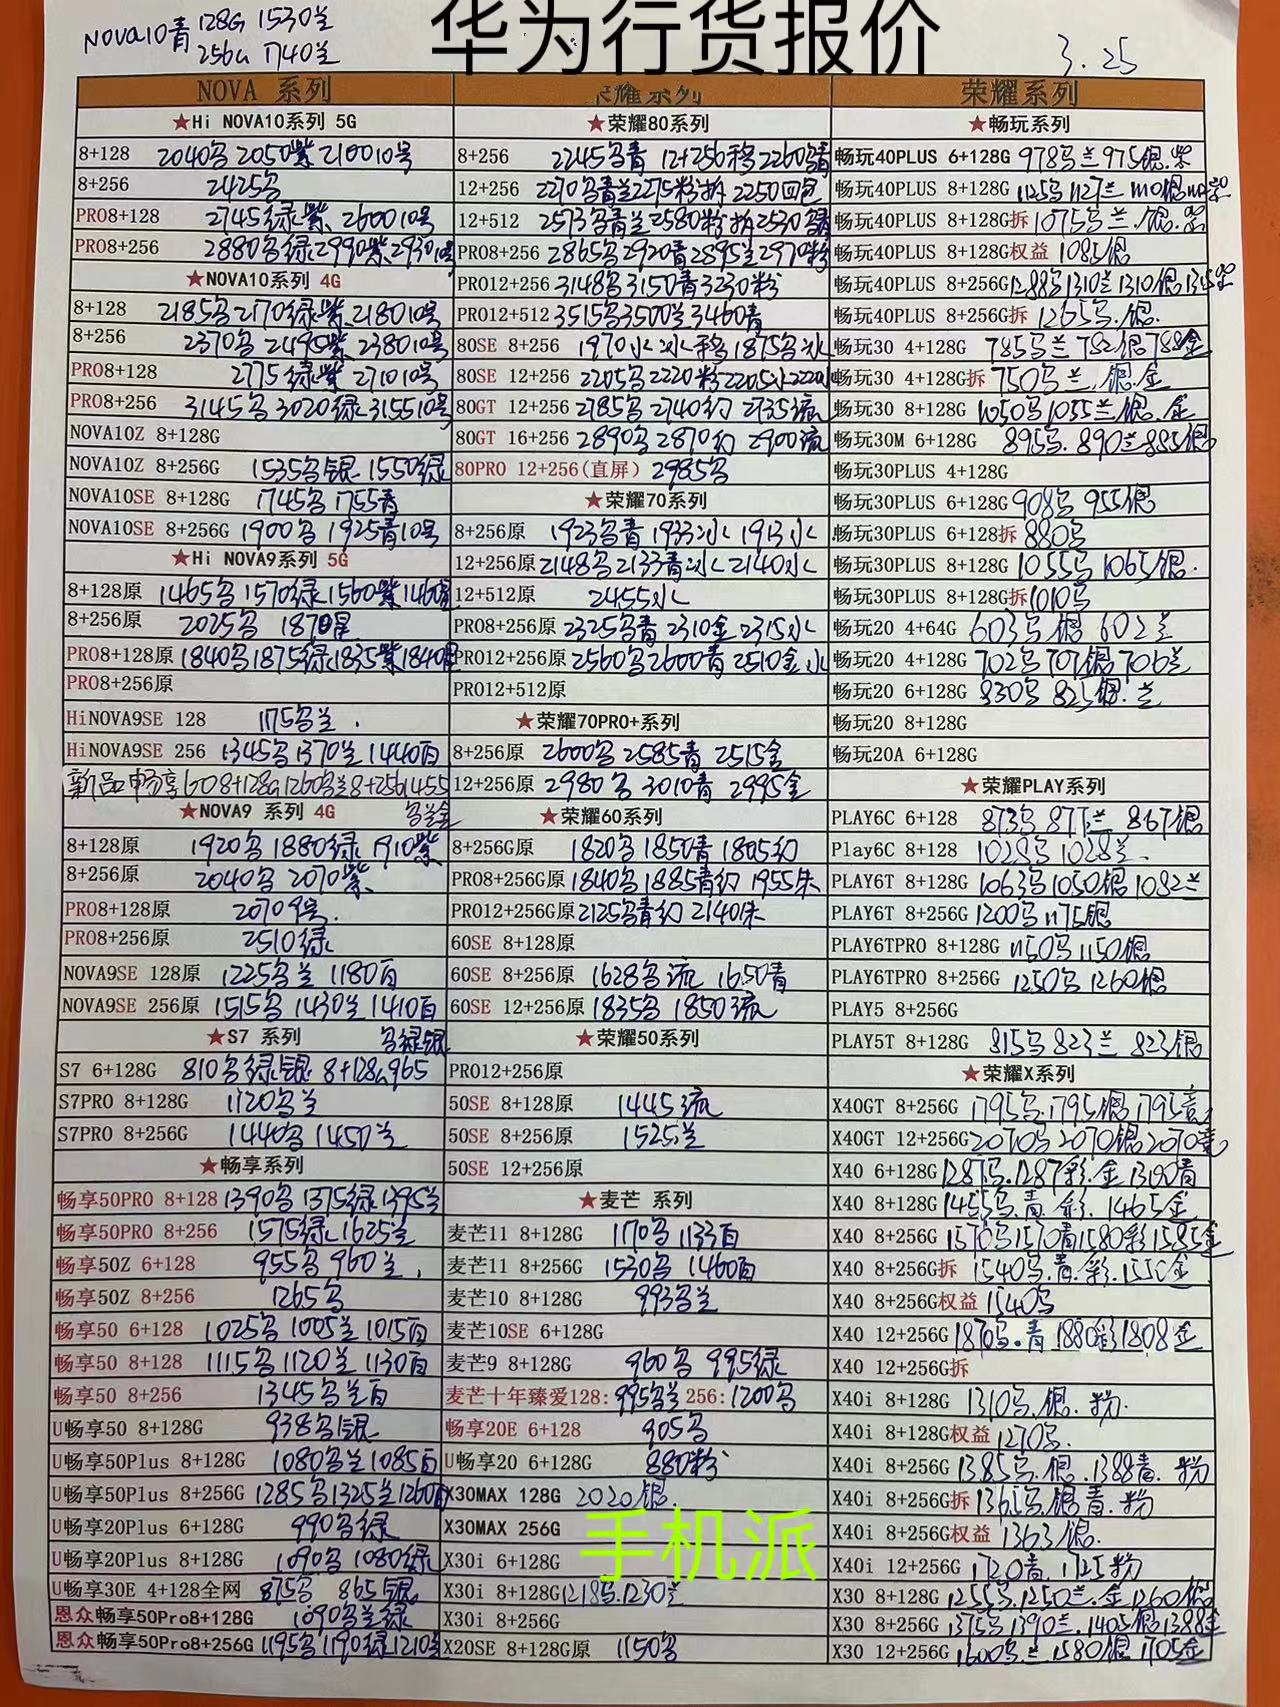 华为行货报价
NOVA10青 128G 1530兰
256G 1740兰
3.25
NOVA 系列
★Hi NOVA10系列 5G
8+128 2040乌 2050紫 2100 10号
8+256 2425乌
PRO8+128 2745绿.紫. 2600 10号
PRO8+256 2880乌绿 2990紫 2930 10号
★NOVA10系列 4G
8+128 2185乌 2170绿.紫. 2180 10号
8+256 2370乌 2495紫 2380 10号
PRO8+128 2775绿紫 2710 10号
PRO8+256 3145乌 3020绿 3155 10号
NOVA10Z 8+128G
NOVA10Z 8+256G 1535乌银. 1550绿
NOVA10SE 8+128G 1745乌 1755青
NOVA10SE 8+256G 1900乌 1925青10号
★Hi NOVA9系列 5G
8+128原 1465乌 1570绿 1560紫
8+256原 2025乌
PRO8+128原 1840乌 1875绿 1835紫 1840
PRO8+256原
HiNOVA9SE 128 1175乌兰.
HiNOVA9SE 256 1345乌 1370兰 1440百
新品畅享60 8+128G 1260乌兰 8+256G 1455
乌兰金
★NOVA9 系列 4G
8+128原 1920乌 1880绿 1910紫
8+256原 2040乌 2070紫
PRO8+128原 2070 9号.
PRO8+256原 2510绿
NOVA9SE 128原 1225乌兰 1180百
NOVA9SE 256原 1515乌 1430兰 1410百
★S7 系列 乌绿银
S7 6+128G 810乌绿银 8+128G 965
S7PRO 8+128G 1120乌兰
S7PRO 8+256G 1440乌 1450兰
★畅享系列
畅享50PRO 8+128 1390乌 1375绿 1395兰
畅享50PRO 8+256 1575绿 1625兰
畅享50Z 6+128 955乌 960兰.
畅享50Z 8+256 1265乌
畅享50 6+128 1025乌 1005兰 1015百
畅享50 8+128 1115乌 1120兰 1130百
畅享50 8+256 1345乌兰百
U畅享50 8+128G 938乌银
U畅享50Plus 8+128G 1080乌兰 1085百
U畅享50Plus 8+256G 1285乌 1325兰 1260百
U畅享20Plus 6+128G 990乌绿
U畅享20Plus 8+128G 1090乌 1080绿
U畅享30E 4+128全网 875乌 865银
恩众畅享50Pro8+128G 1090乌兰绿
恩众畅享50Pro8+256G 1195乌 1190绿 1210
荣耀系列
★荣耀80系列
8+256 2245乌青 12+256移 2260乌青
12+256 2270乌青兰 2275粉拆 2250回包
12+512 2573乌青兰 2580粉拆 2530乌青
PRO8+256 2865乌 2920青 2895兰 2970粉
PRO12+256 3148乌 3150青 3230粉
PRO12+512 3515乌 3500兰 3460青
80SE 8+256 1970水冰移 1875乌冰
80SE 12+256 2205乌 2220粉 2205水 2220冰
80GT 12+256 2785乌 2740幻 2735流
80GT 16+256 2890乌 2870幻 2900流
80PRO 12+256(直屏) 2985乌
★荣耀70系列
8+256原 1923乌青 1933冰 1913水
12+256原 2148乌 2133青冰 2140水
12+512原 2455水
PRO8+256原 2325乌青 2310金 2315水
PRO12+256原 2560乌 2600青 2510金水
PRO12+512原
★荣耀70PRO+系列
8+256原 2600乌 2585青 2515金
12+256原 2980乌 3010青 2995金
★荣耀60系列
8+256G原 1820乌 1850青 1805幻
PRO8+256G原 1840乌 1885青幻 1955朱
PRO12+256G原 2125乌青幻 2140朱
60SE 8+128原
60SE 8+256原 1628乌流 1650青
60SE 12+256原 1835乌 1850流
★荣耀50系列
PRO12+256原
50SE 8+128原 1445流
50SE 8+256原 1525兰
50SE 12+256原
★麦芒 系列
麦芒11 8+128G 1170乌 1133百
麦芒11 8+256G 1530乌 1460百
麦芒10 8+128G 993乌兰
麦芒10SE 6+128G
麦芒9 8+128G 960乌 995绿
麦芒十年臻爱128: 995乌兰 256: 1200乌
畅享20E 6+128 905乌
U畅享20 6+128G 880粉
X30MAX 128G 2020银.
X30MAX 256G
X30i 6+128G
X30i 8+128G 1218乌.1230兰
X30i 8+256G
X20SE 8+128G原 1150乌
荣耀系列
★畅玩系列
畅玩40PLUS 6+128G 978乌兰 975银.紫
畅玩40PLUS 8+128G 1125乌 1127兰 1110银
畅玩40PLUS 8+128G拆 1075乌兰.银.紫
畅玩40PLUS 8+128G权益 1085银
畅玩40PLUS 8+256G 1288乌 1310兰 1310银 1315紫
畅玩40PLUS 8+256G拆 1265乌.银.
畅玩30 4+128G 785乌兰 782银 788金
畅玩30 4+128G拆 750乌兰.银.金
畅玩30 8+128G 1050乌 1055兰.银.金
畅玩30M 6+128G 895乌. 890兰 885银
畅玩30PLUS 4+128G
畅玩30PLUS 6+128G 908乌 955银
畅玩30PLUS 6+128拆 880乌
畅玩30PLUS 8+128G 1055乌 1065银.
畅玩30PLUS 8+128G拆 1010乌
畅玩20 4+64G 603乌银 602兰
畅玩20 4+128G 702乌 707银 706兰
畅玩20 6+128G 830乌 825银.兰
畅玩20 8+128G
畅玩20A 6+128G
★荣耀PLAY系列
PLAY6C 6+128 873乌 877兰 867银
Play6C 8+128 1028乌 1028兰.
PLAY6T 8+128G 1063乌 1050银 1082兰
PLAY6T 8+256G 1200乌 1175银
PLAY6TPRO 8+128G 1150乌 1150银
PLAY6TPRO 8+256G 1250乌 1260银
PLAY5 8+256G
PLAY5T 8+128G 815乌 823兰 823银
★荣耀X系列
X40GT 8+256G 1795乌.1795银 1795竞
X40GT 12+256G 2070乌 2070银 2070竞
X40 6+128G 1287乌.1287彩.金 1300青
X40 8+128G 1455乌.青.彩. 1465金
X40 8+256G 1570乌 1570青 1580彩 1585金
X40 8+256G拆 1540乌.青.彩.1550金
X40 8+256G权益 1540乌
X40 12+256G 1870乌.青 1880彩 1808金
X40 12+256G拆
X40i 8+128G 1310乌.银.粉.
X40i 8+128G权益 1270乌.
X40i 8+256G 1385乌.银.1388青.粉
X40i 8+256G拆 1365乌.银青.粉
X40i 8+256G权益 1363银.
X40i 12+256G 1720青.1725粉
X30 8+128G 1255乌.1250兰.金 1260银
X30 8+256G 1375乌.1390兰.1405银 1388金
X30 12+256G 1600乌.兰.1580银 1705金
手机派